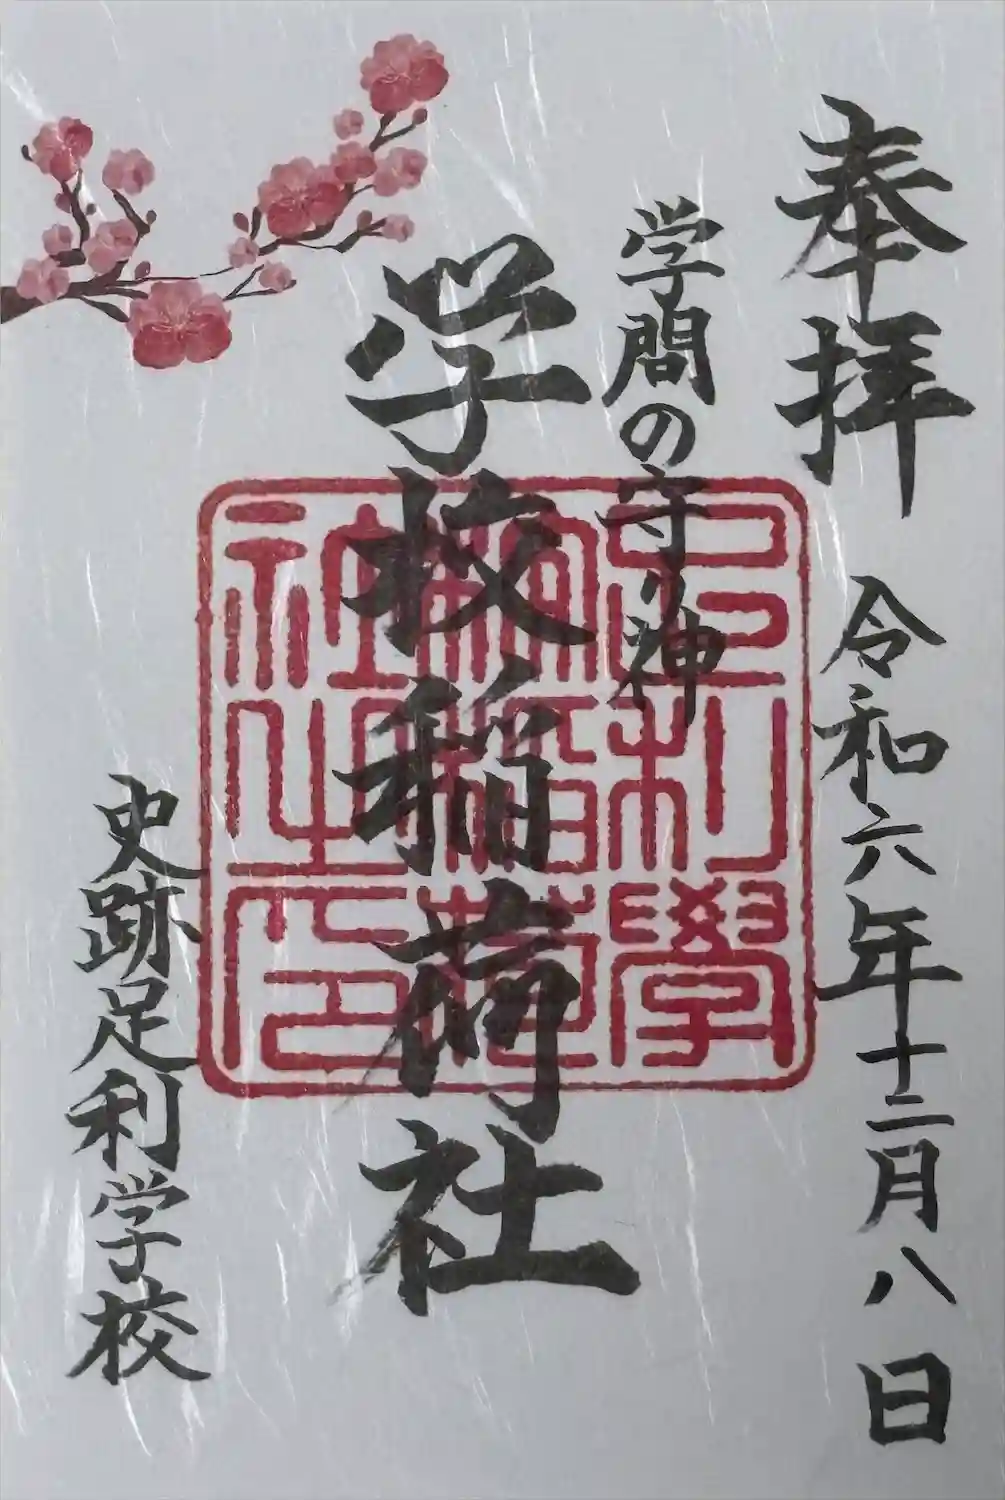 奉拝 令和六年十二月八日
学問の守り神
学校稲荷社
史跡足利学校
足利學
校稲荷
社之印